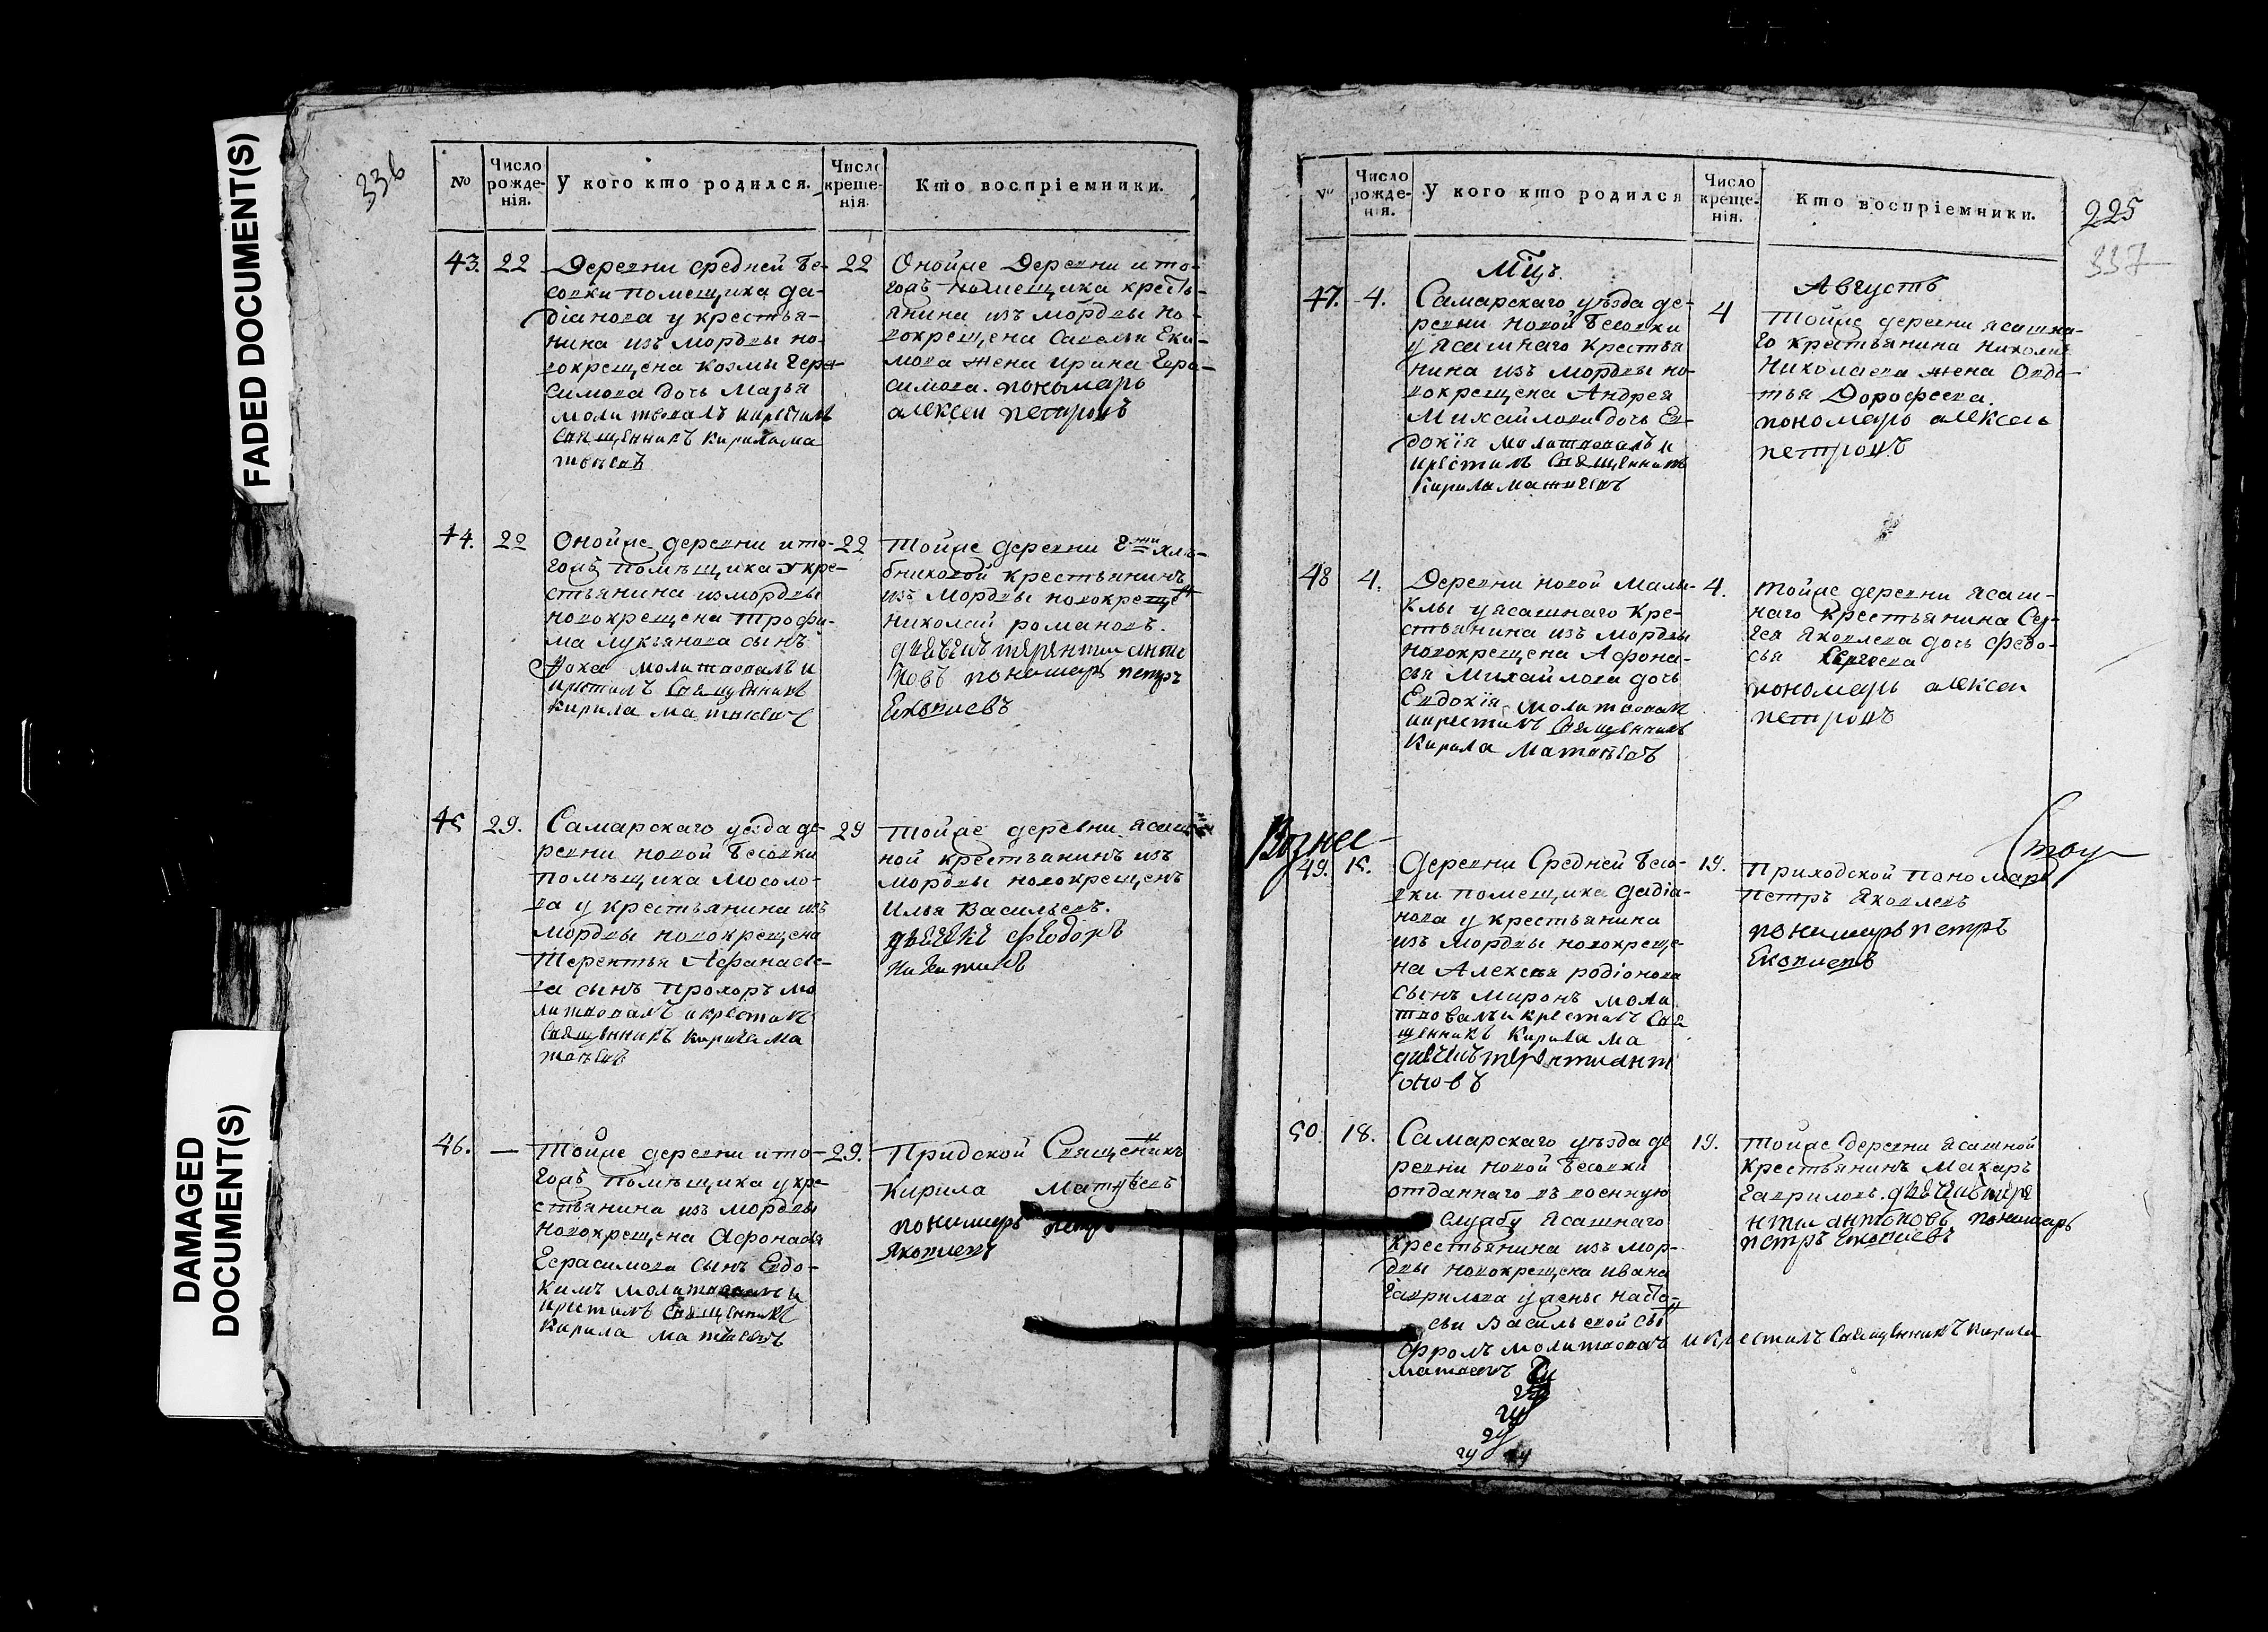 FADED DOCUMENT(S)
DAMAGED
DOCUMENT(S)
336
№
Число рожде- нія.
У кого кто родился.
Число креще- нія.
Кто воспріемники.
43. 22
Деревни средней Бе-
совки помещика да-
діанова у крестья-
нина изъ мордвы но-
вокрещена Козмы Гера-
симова дочь Марья
молитвовалъ икрестилъ
священникъ кирила ма
твѣевъ
22
Онойже Деревни ито-
гожъ помещика кресть-
янина изъ мордвы но-
вокрещена Савелья Еки-
мова жена Ирина Гера-
симова. пономарь
алексеи петровъ
44. 22
Онойже деревни ито-
гожъ помѣщика у кре-
стьянина измордвы
новокрещена Трофи-
ма Лукьянова сынъ
Фока молитвовалъ и
крестилъ священникъ
кирила матвѣевъ
22
Тойже деревни
крестьянинъ
изъ мордвы новокреще
николай романовъ.
дьячекъ терентии анто
новъ пономарь петръ
Яковлевъ
45 29.
Самарскаго уезда де-
ревни новой Бесовки
помѣщика Мосоло-
ва у крестьянина изъ
мордвы новокрещена
Терентья Афанасье-
ва сынъ Прохоръ мо
литвовалъ икрестилъ
священникъ кирила ма
твѣевъ
29
Тойже деревни ясаш
ной крестьянинъ изъ
мордвы новокрещенъ
Илья Васильевъ.
дьячекъ Феодоръ
никитинъ
46. —
Тойже деревни ито-
гожъ помѣщика укре
стьянина изъ мордвы
новокрещена Афонасья
Герасимова сынъ Евдо-
кимъ молитвовалъ и
крестилъ священникъ
Кирила матвѣевъ
29.
Придской Священикъ
Кирила Матвѣевъ
пономарь петръ
Яковлевъ
225
337
№
Число рожде- нія.
У кого кто родился
Число креще- нія.
Кто воспріемники.
Мцъ.
Августъ
47. 4.
Самарскаго уѣзда де-
ревни новой Бесовки
у ясашнаго крестья
нина изъ мордвы но-
вокрещена Андрея
Михайлова дочь Ев-
докія молитвовалъ и
крестилъ священникъ
Кирила матвѣевъ
4
Тойже деревни ясашна-
го крестьянина Николая
Николаева жена Овдо-
тья Дорофеева.
пономарь алексеи
петровъ
48 4.
Деревни новой Малы-
клы у ясашнаго кре-
стьянина изъ мордвы
новокрещена Афона-
сья Михайлова дочь
Евдокія молитвовалъ
икрестилъ священникъ
Кирила Матвѣевъ
4.
Тойже деревни ясаш-
наго крестьянина Сер-
гея Яковлева дочь Федо-
сья Сергеева
пономарь алексеи
петровъ
Вознес-
49. 15.
Деревни Средней Бесо-
вки помещика дадіа-
нова у крестьянина
изъ мордвы новокреще-
на Алексея родіонова
сынъ Миронъ моли
твовалъ и крестилъ свя
щенникъ Кирила ма
дьячекъ терентии ант
оновъ
19.
Приходской пономарь
Петръ Яковлевъ
пономарь петръ
Яковлевъ
50. 18.
Самарскаго уѣзда де
ревни новой Бесовки
отданнаго въ военную
службу ясашнаго
крестьянина изъ мор-
двы новокрещена ивана
Гаврилова у жены
Васильевой сы
молитвовалъ икрестилъ священникъ кирила
матвѣевъ
19.
Тойже деревни ясашной
крестьянинъ Макаръ
Гавриловъ. дьячекъ тере
нтии антоновъ пономарь
петръ Яковлевъ